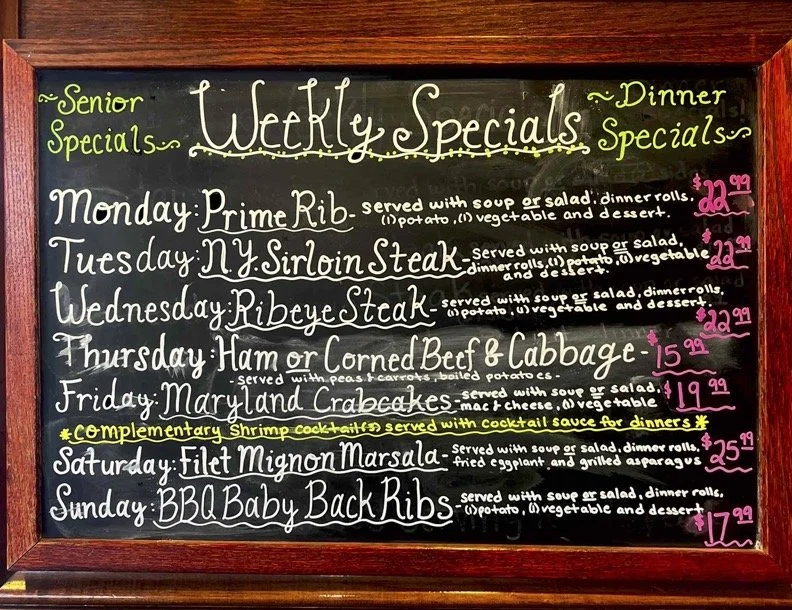 ~Senior
Specials~
Weekly Specials
~Dinner
Specials~
Monday: Prime Rib- served with soup or salad, dinner rolls,
(1) potato, (1) vegetable and dessert. $22.99
Tuesday: N.Y. Sirloin Steak- served with soup or salad,
dinner rolls, (1) potato, (1) vegetable
and dessert. $22.99
Wednesday: Ribeye Steak- served with soup or salad, dinner rolls,
(1) potato, (1) vegetable and dessert. $22.99
Thursday: Ham or Corned Beef & Cabbage- $15.99
-served with peas & carrots, boiled potatoes-
Friday: Maryland Crabcakes- served with soup or salad,
mac & cheese, (1) vegetable $19.99
*complementary shrimp cocktail(s) served with cocktail sauce for dinners*
Saturday: Filet Mignon Marsala- served with soup or salad, dinner rolls,
fried eggplant and grilled asparagus $25.99
Sunday: BBQ Baby Back Ribs- served with soup or salad, dinner rolls,
(1) potato, (1) vegetable and dessert $17.99